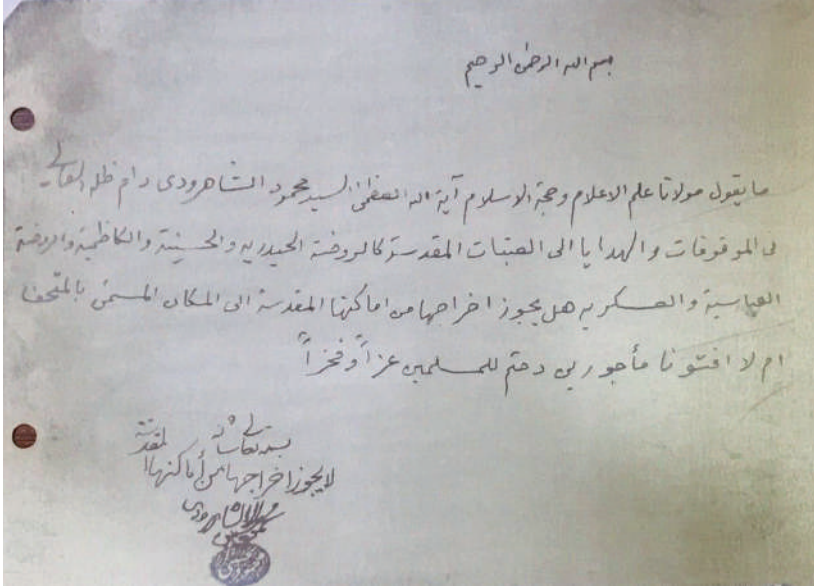 بسم الله الرحمن الرحيم
ما يقول مولانا علم الاعلام وحجة الاسلام آية الله العظمى السيد محمود الشاهرودى دام ظله العالي
فى الموقوفات والهدايا الى العتبات المقدسة كالروضة الحيدريه والحسينية والكاظمية والروضة
العباسية والعسكريه هل يجوز اخراجها من اماكنها المقدسة الى المكان المسمى بالمتحف
ام لا افتونا مأجورين دمتم للمسلمين عزاً وفخراً
بسمه تعالى شأنه
لا يجوز اخراجها من أماكنها المقدسة
الشاهرودي